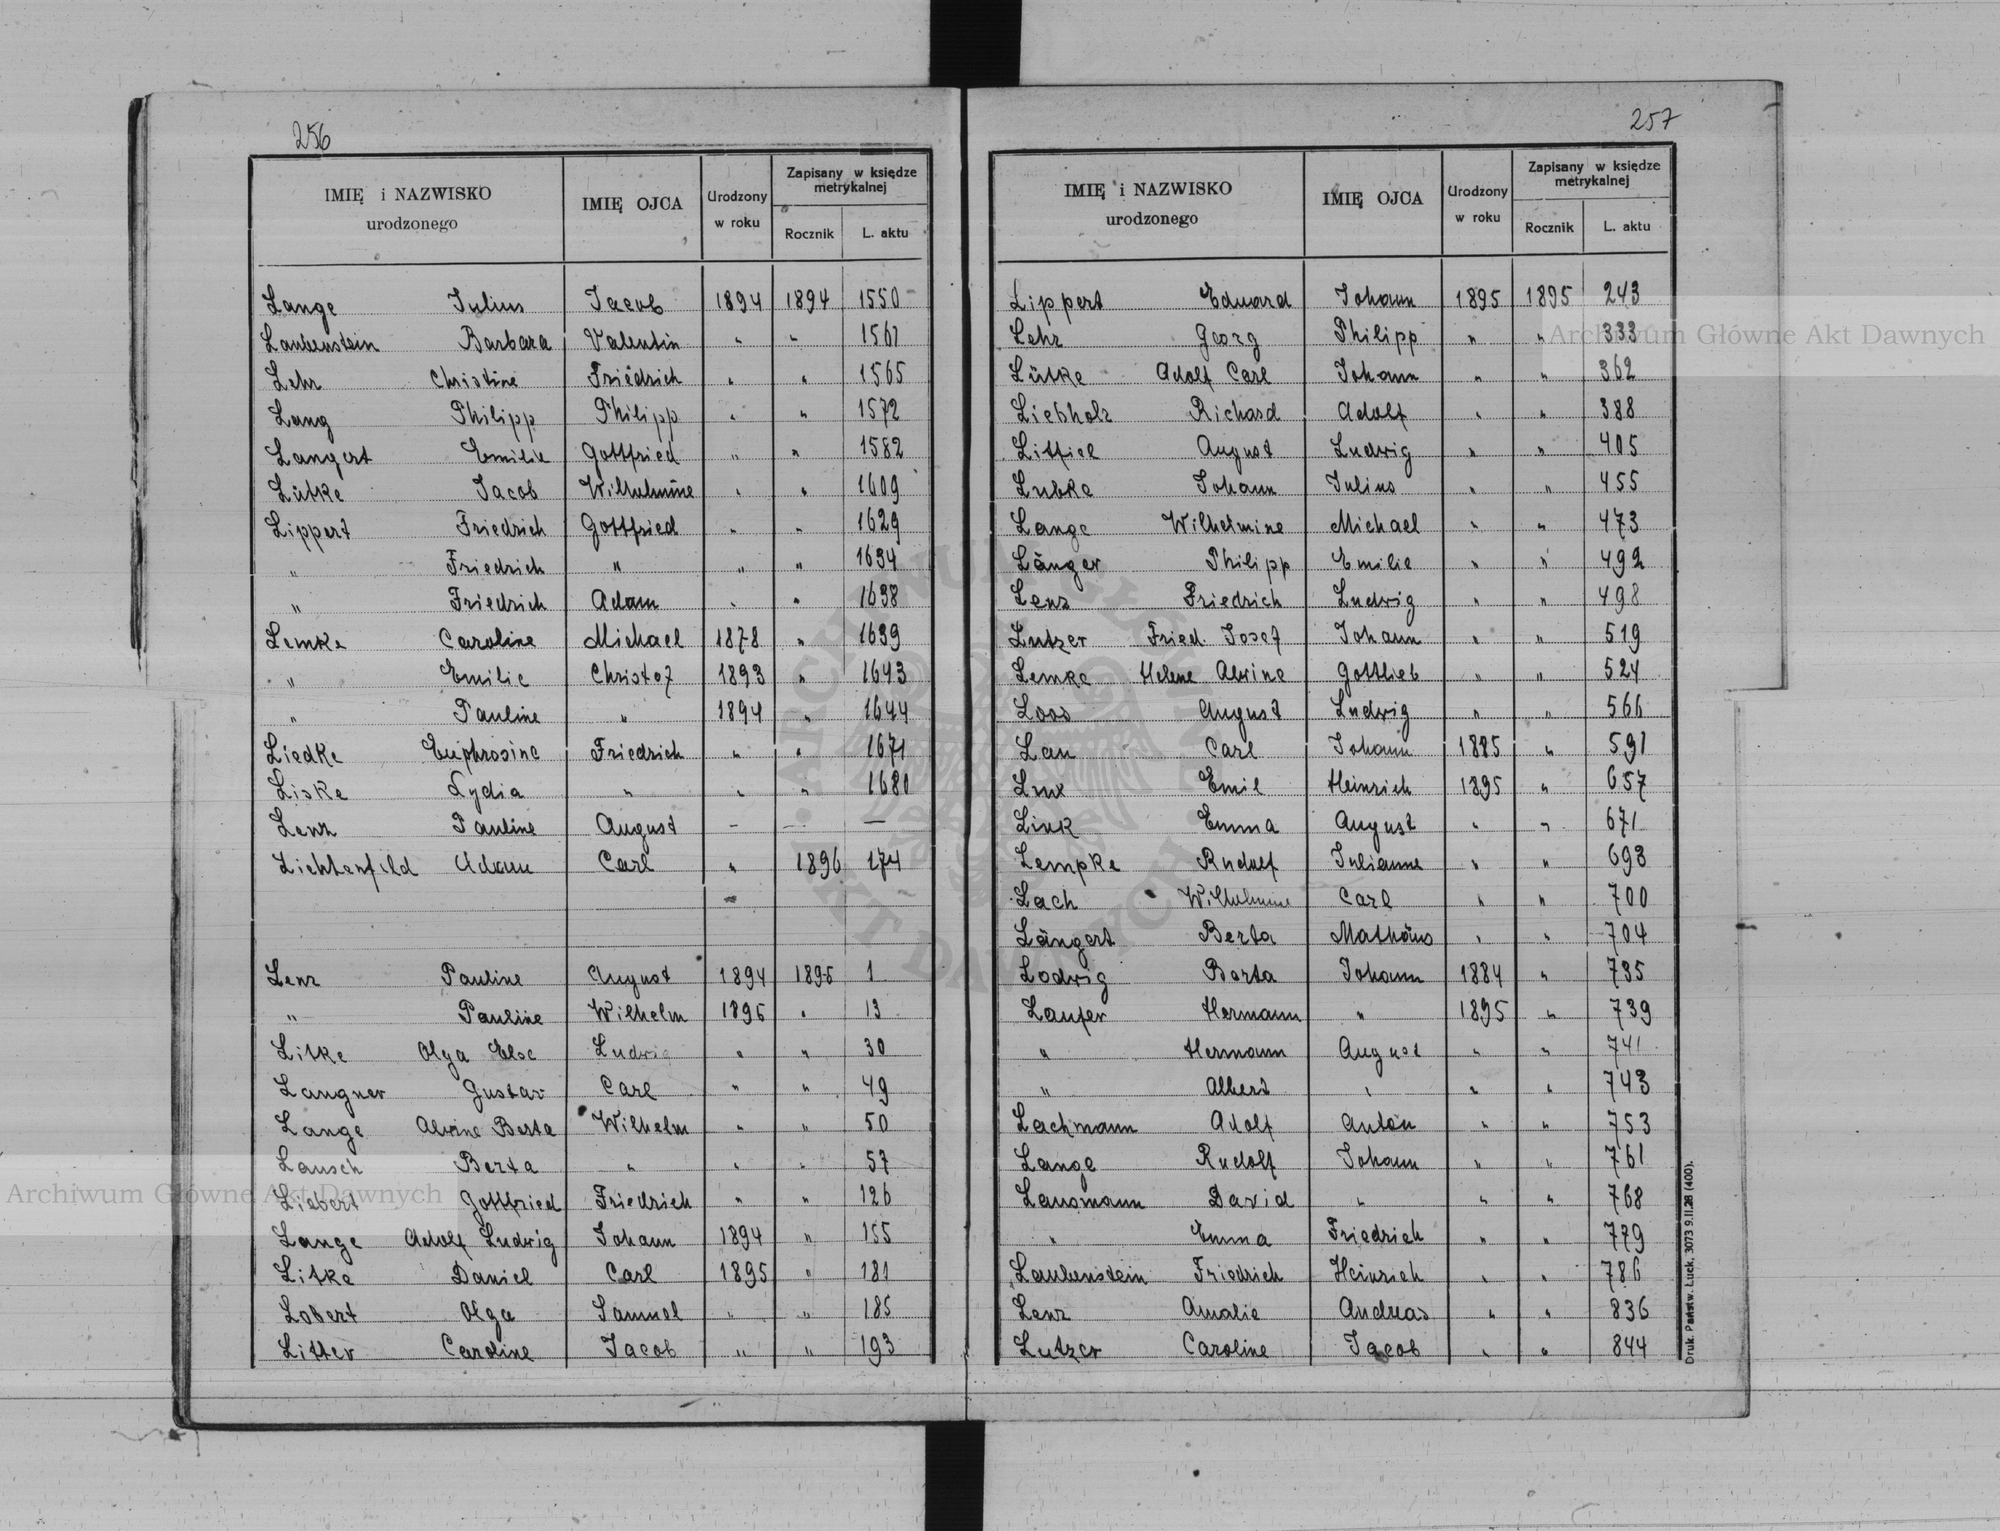 256
IMIĘ i NAZWISKO urodzonego IMIĘ OJCA Urodzony w roku Zapisany w księdze metrykalnej Rocznik L. aktu
Lange Julius Jacob 1894 1894 1550
Laubenstein Barbara Valentin " " 1561
Lehr Christine Friedrich " " 1565
Lang Philipp Philipp " " 1572
Langert Emilie Gottfried " " 1582
Lütke Jacob Wilhelmine " " 1609
Lippert Friedrich Gottfried " " 1629
" Friedrich " " " 1634
" Friedrich Adam " " 1638
Lemke Caroline Michael 1878 " 1639
" Emilie Christof 1893 " 1643
" Pauline " 1894 " 1644
Liedke Euphrosine Friedrich " " 1671
Liske Lydia " " " 1680
Lenz Pauline August — — —
Lichtenfeld Adam Carl " 1896 174
Lenz Pauline August 1894 1895 1
" Pauline Wilhelm 1895 " 13
Litke Olga Else Ludwig " " 30
Langner Gustav Carl " " 49
Lange Alvine Berta Wilhelm " " 50
Lausch Berta " " " 57
Liebert Gottfried Friedrich " " 126
Lange Adolf Ludwig Johann 1894 " 155
Litke Daniel Carl 1895 " 181
Lobert Olga Samuel " " 185
Litter Caroline Jacob " " 193
257
IMIĘ i NAZWISKO urodzonego IMIĘ OJCA Urodzony w roku Zapisany w księdze metrykalnej Rocznik L. aktu
Lippert Eduard Johann 1895 1895 243
Lehr Georg Philipp " " 333
Lütke Adolf Carl Johann " " 362
Liebholz Richard Adolf " " 388
Litfiel August Ludwig " " 405
Lubke Johann Julius " " 455
Lange Wilhelmine Michael " " 473
Länger Philipp Emilie " " 492
Lenz Friedrich Ludwig " " 498
Lutzer Fried. Josef Johann " " 519
Lemke Helene Alvine Gottlieb " " 524
Loos August Ludwig " " 566
Lau Carl Johann 1885 " 591
Lux Emil Heinrich 1895 " 657
Link Emma August " " 671
Lempke Rudolf Julianne " " 693
Lach Wilhelmine Carl " " 700
Längert Berta Mathäus " " 704
Lodwig Berta Johann 1884 " 735
Laufer Hermann " 1895 " 739
" Hermann August " " 741
" Albert " " " 743
Lachmann Adolf Anton " " 753
Lange Rudolf Johann " " 761
Lausmann David " " " 768
" Emma Friedrich " " 779
Laubenstein Friedrich Heinrich " " 786
Lenz Amalie Andreas " " 836
Lutzer Caroline Jacob " " 844
Druk. Państw. Łuck. 3073 9.II.28 (400).
Archiwum Główne Akt Dawnych
Archiwum Główne Akt Dawnych
ARCHIWUM GŁÓWNE AKT DAWNYCH